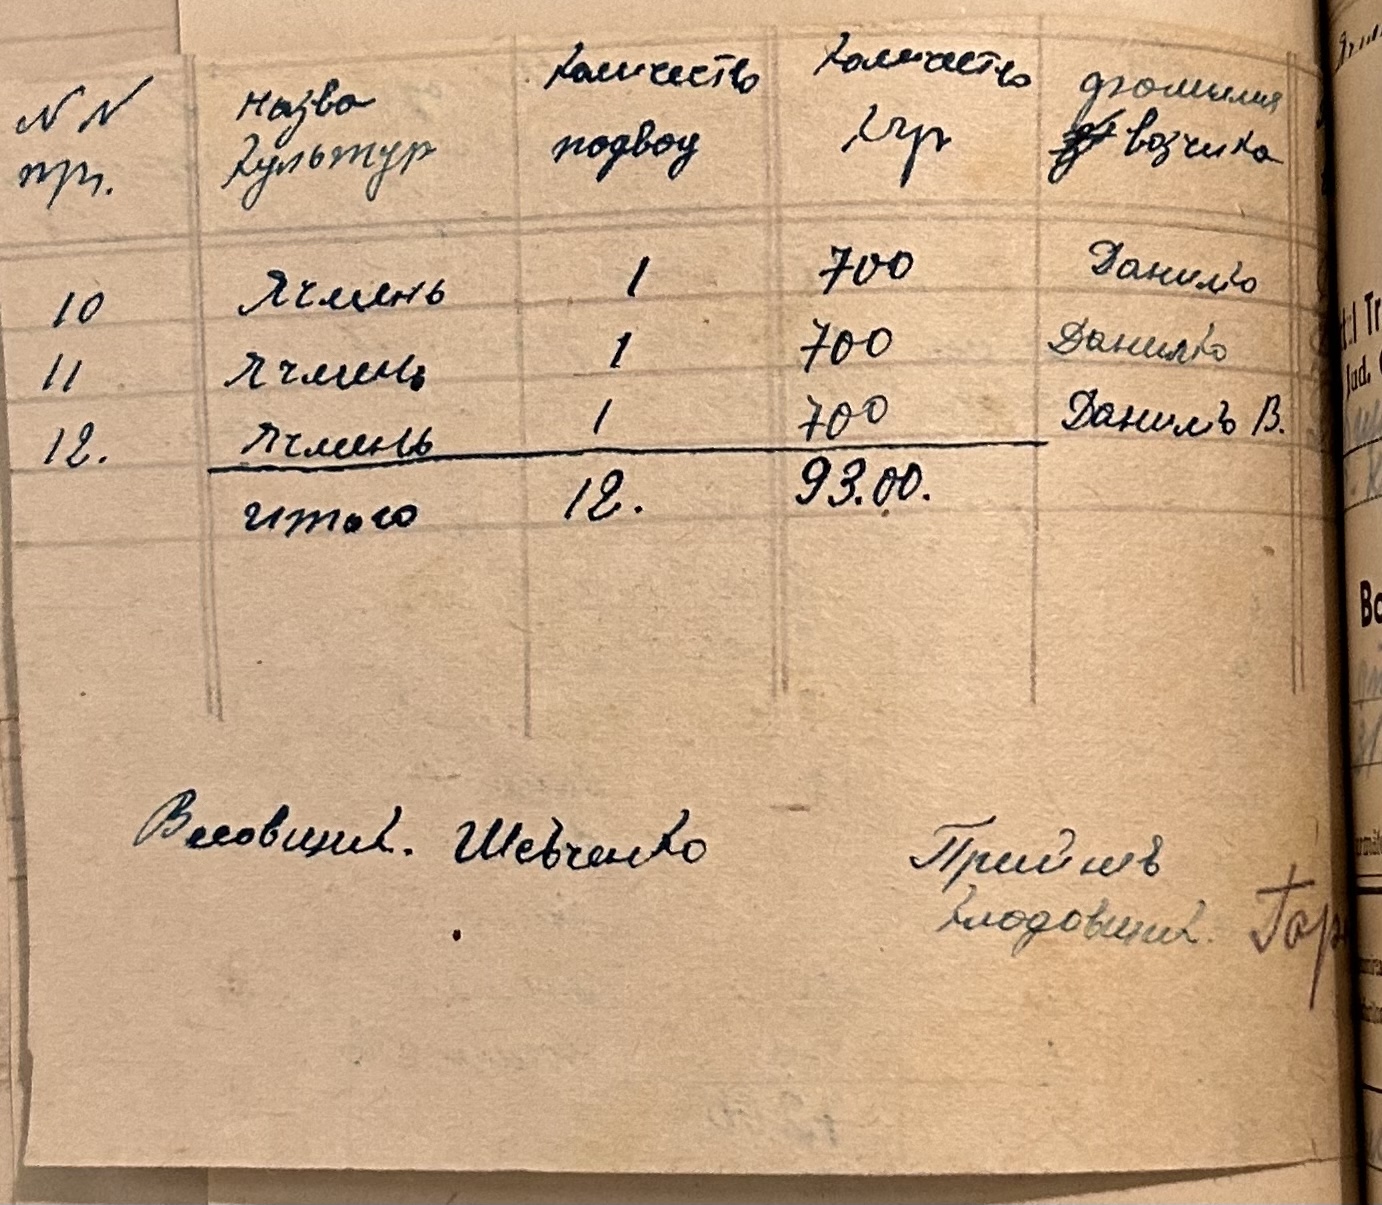 NN пр. Назва культур Количество подвод Количество Кгр фомылия возчика
10 Ячмень 1 700 Данилко
11 Ячмень 1 700 Данилко
12. Ячмень 1 700 Данилко В.
итого 12. 93.00.
Весовщик. Шевченко
Прийняв
кладовщик. Гор